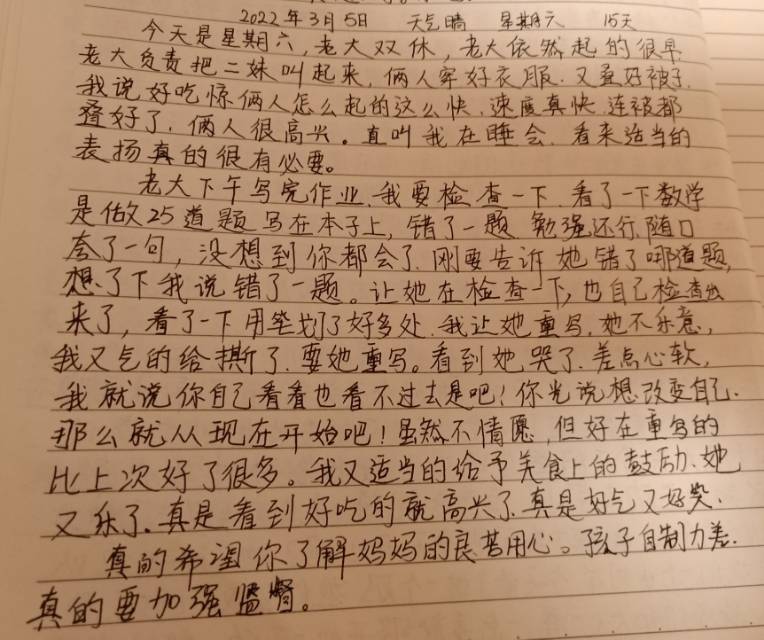 2022年3月5日 天气晴 星期六 15天
今天是星期六,老大双休,老大依然起的很早
老大负责把二妹叫起来,俩人穿好衣服.又叠好被子.
我说好吃惊俩人怎么起的这么快.速度真快.连被都
叠好了.俩人很高兴。直叫我在睡会.看来适当的
表扬真的很有必要。
老大下午写完作业.我要检查一下.看了一下数学
是做25道题写在本子上,错了一题 勉强还行.随口
夸了一句,没想到你都会了.刚要告诉她错了哪道题,
想了下我说错了一题。让她在检查一下,也自己检查出
来了,看了一下用笔划了好多处.我让她重写.她不乐意,
我又气的给撕了.要她重写。看到她哭了.差点心软,
我就说你自己看看也看不过去是吧!你光说想改变自己.
那么就从现在开始吧!虽然不情愿,但好在重写的
比上次好了很多。我又适当的给予美食上的鼓励.她
又乐了.真是看到好吃的就高兴了.真是好气又好笑.
真的希望你了解妈妈的良苦用心。孩子自制力差.
真的要加强监督。